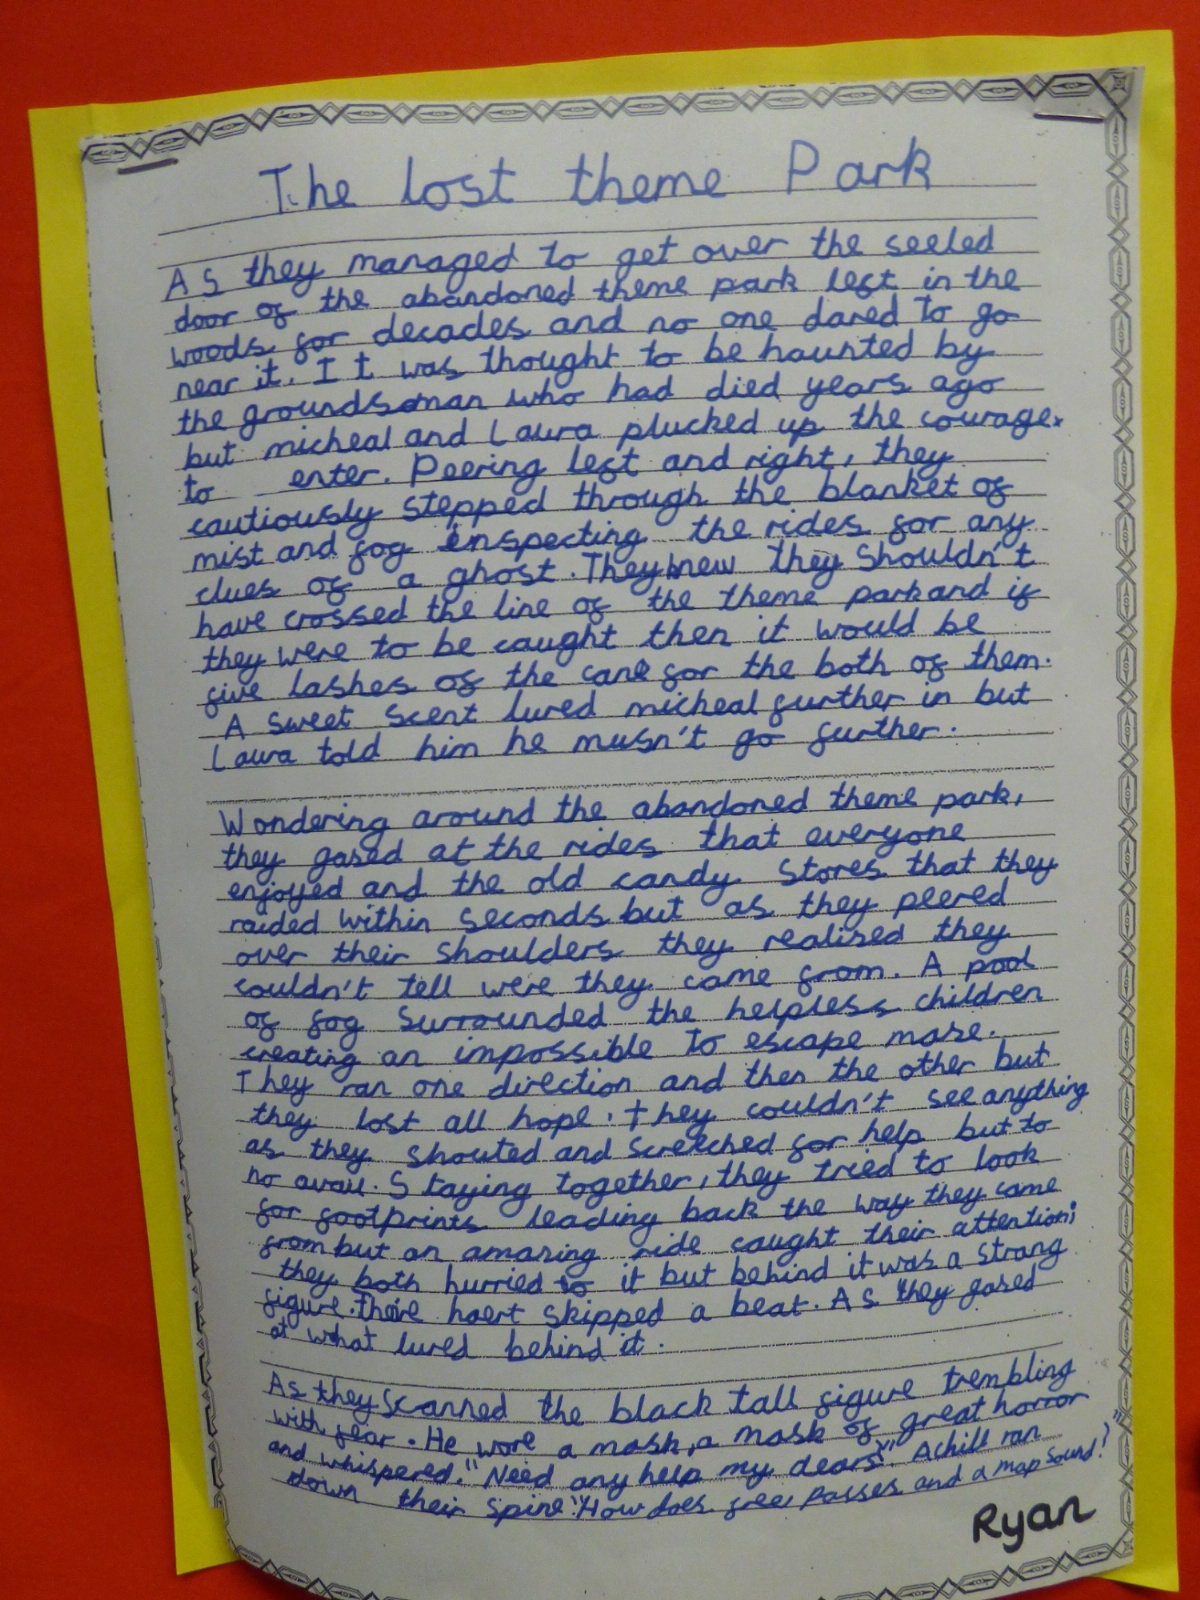 The lost theme Park
As they managed to get over the seeled
door of the abandoned theme park left in the
woods for decades and no one dared to go
near it. It was thought to be haunted by
the groundsman who had died years ago
but micheal and Laura plucked up the courage
to enter. Peering left and right, they
cautiously stepped through the blanket of
mist and fog inspecting the rides for any
clues of a ghost. They knew they shouldn't
have crossed the line of the theme park and if
they were to be caught then it would be
five lashes of the cane for the both of them.
A sweet scent lured micheal further in but
Laura told him he musn't go further.
Wondering around the abandoned theme park,
they gased at the rides that everyone
enjoyed and the old candy stores that they
raided within seconds but as they peered
over their shoulders they realised they
couldn't tell were they came from. A pool
of fog surrounded the helpless children
creating an impossible to escape mase.
They ran one direction and then the other but
they lost all hope. They couldn't see anything
as they shouted and scretched for help but to
no avail. Staying together, they tried to look
for footprints leading back the way they came
from but an amazing ride caught their attention;
they both hurried to it but behind it was a strang
figure. There haert skipped a beat. As they gased
at what lured behind it.
As they scanned the black tall figure trembling
with fear. He wore a mask, a mask of great horror
and whispered. "Need any help my dears!" A chill ran
down their spine. "How does free passes and a map sound!"
Ryan